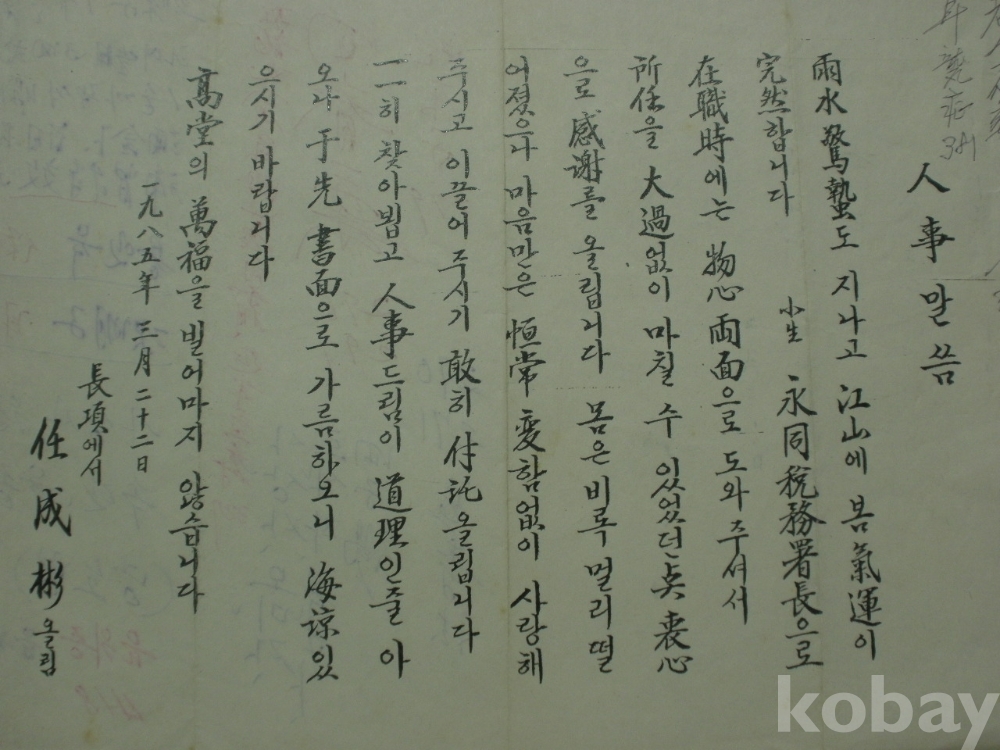 人事말씀
雨水驚蟄도 지나고 江山에 봄氣運이
完然합니다
小生 永同稅務署長으로
在職時에는 物心両面으로 도와주셔서
所任을 大過없이 마칠 수 있었던 点 衷心
으로 感謝를 올립니다 몸은 비록 멀리 떨
어졌으나 마음만은 恒常 変함없이 사랑해
주시고 이끌어 주시기 敢히 付託올립니다
一一히 찾아뵙고 人事드림이 道理인줄 아
오나 于先 書面으로 가름하오니 海諒있
으시기 바랍니다
高堂의 萬福을 빌어마지 않습니다
一九八五年 三月 二十二日
長項에서
任成彬 올림
kobay